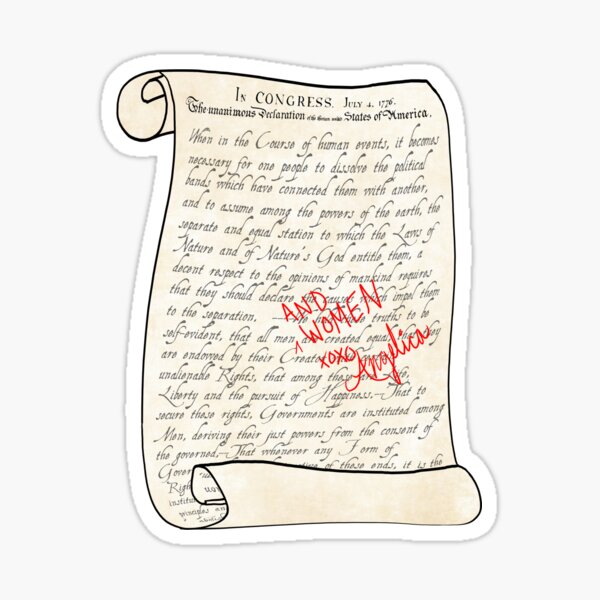 In CONGRESS. July 4, 1776.
The unanimous Declaration of the thirteen united States of America,
When in the Course of human events, it becomes
necessary for one people to dissolve the political
bands which have connected them with another,
and to assume among the powers of the earth, the
separate and equal station to which the Laws of
Nature and of Nature's God entitle them, a
decent respect to the opinions of mankind requires
that they should declare the causes which impel them
to the separation, truths to be
self-evident, that all men are created equal, that they
are endowed by their Creator
unalienable Rights, that among these are Life,
Liberty and the pursuit of Happiness.—That to
secure these rights, Governments are instituted among
Men, deriving their just powers from the consent of
the governed,—That whenever any Form of
of these ends, it is the
Righ
institut
principles an
AND
^ WOMEN
xoxo
Angelica